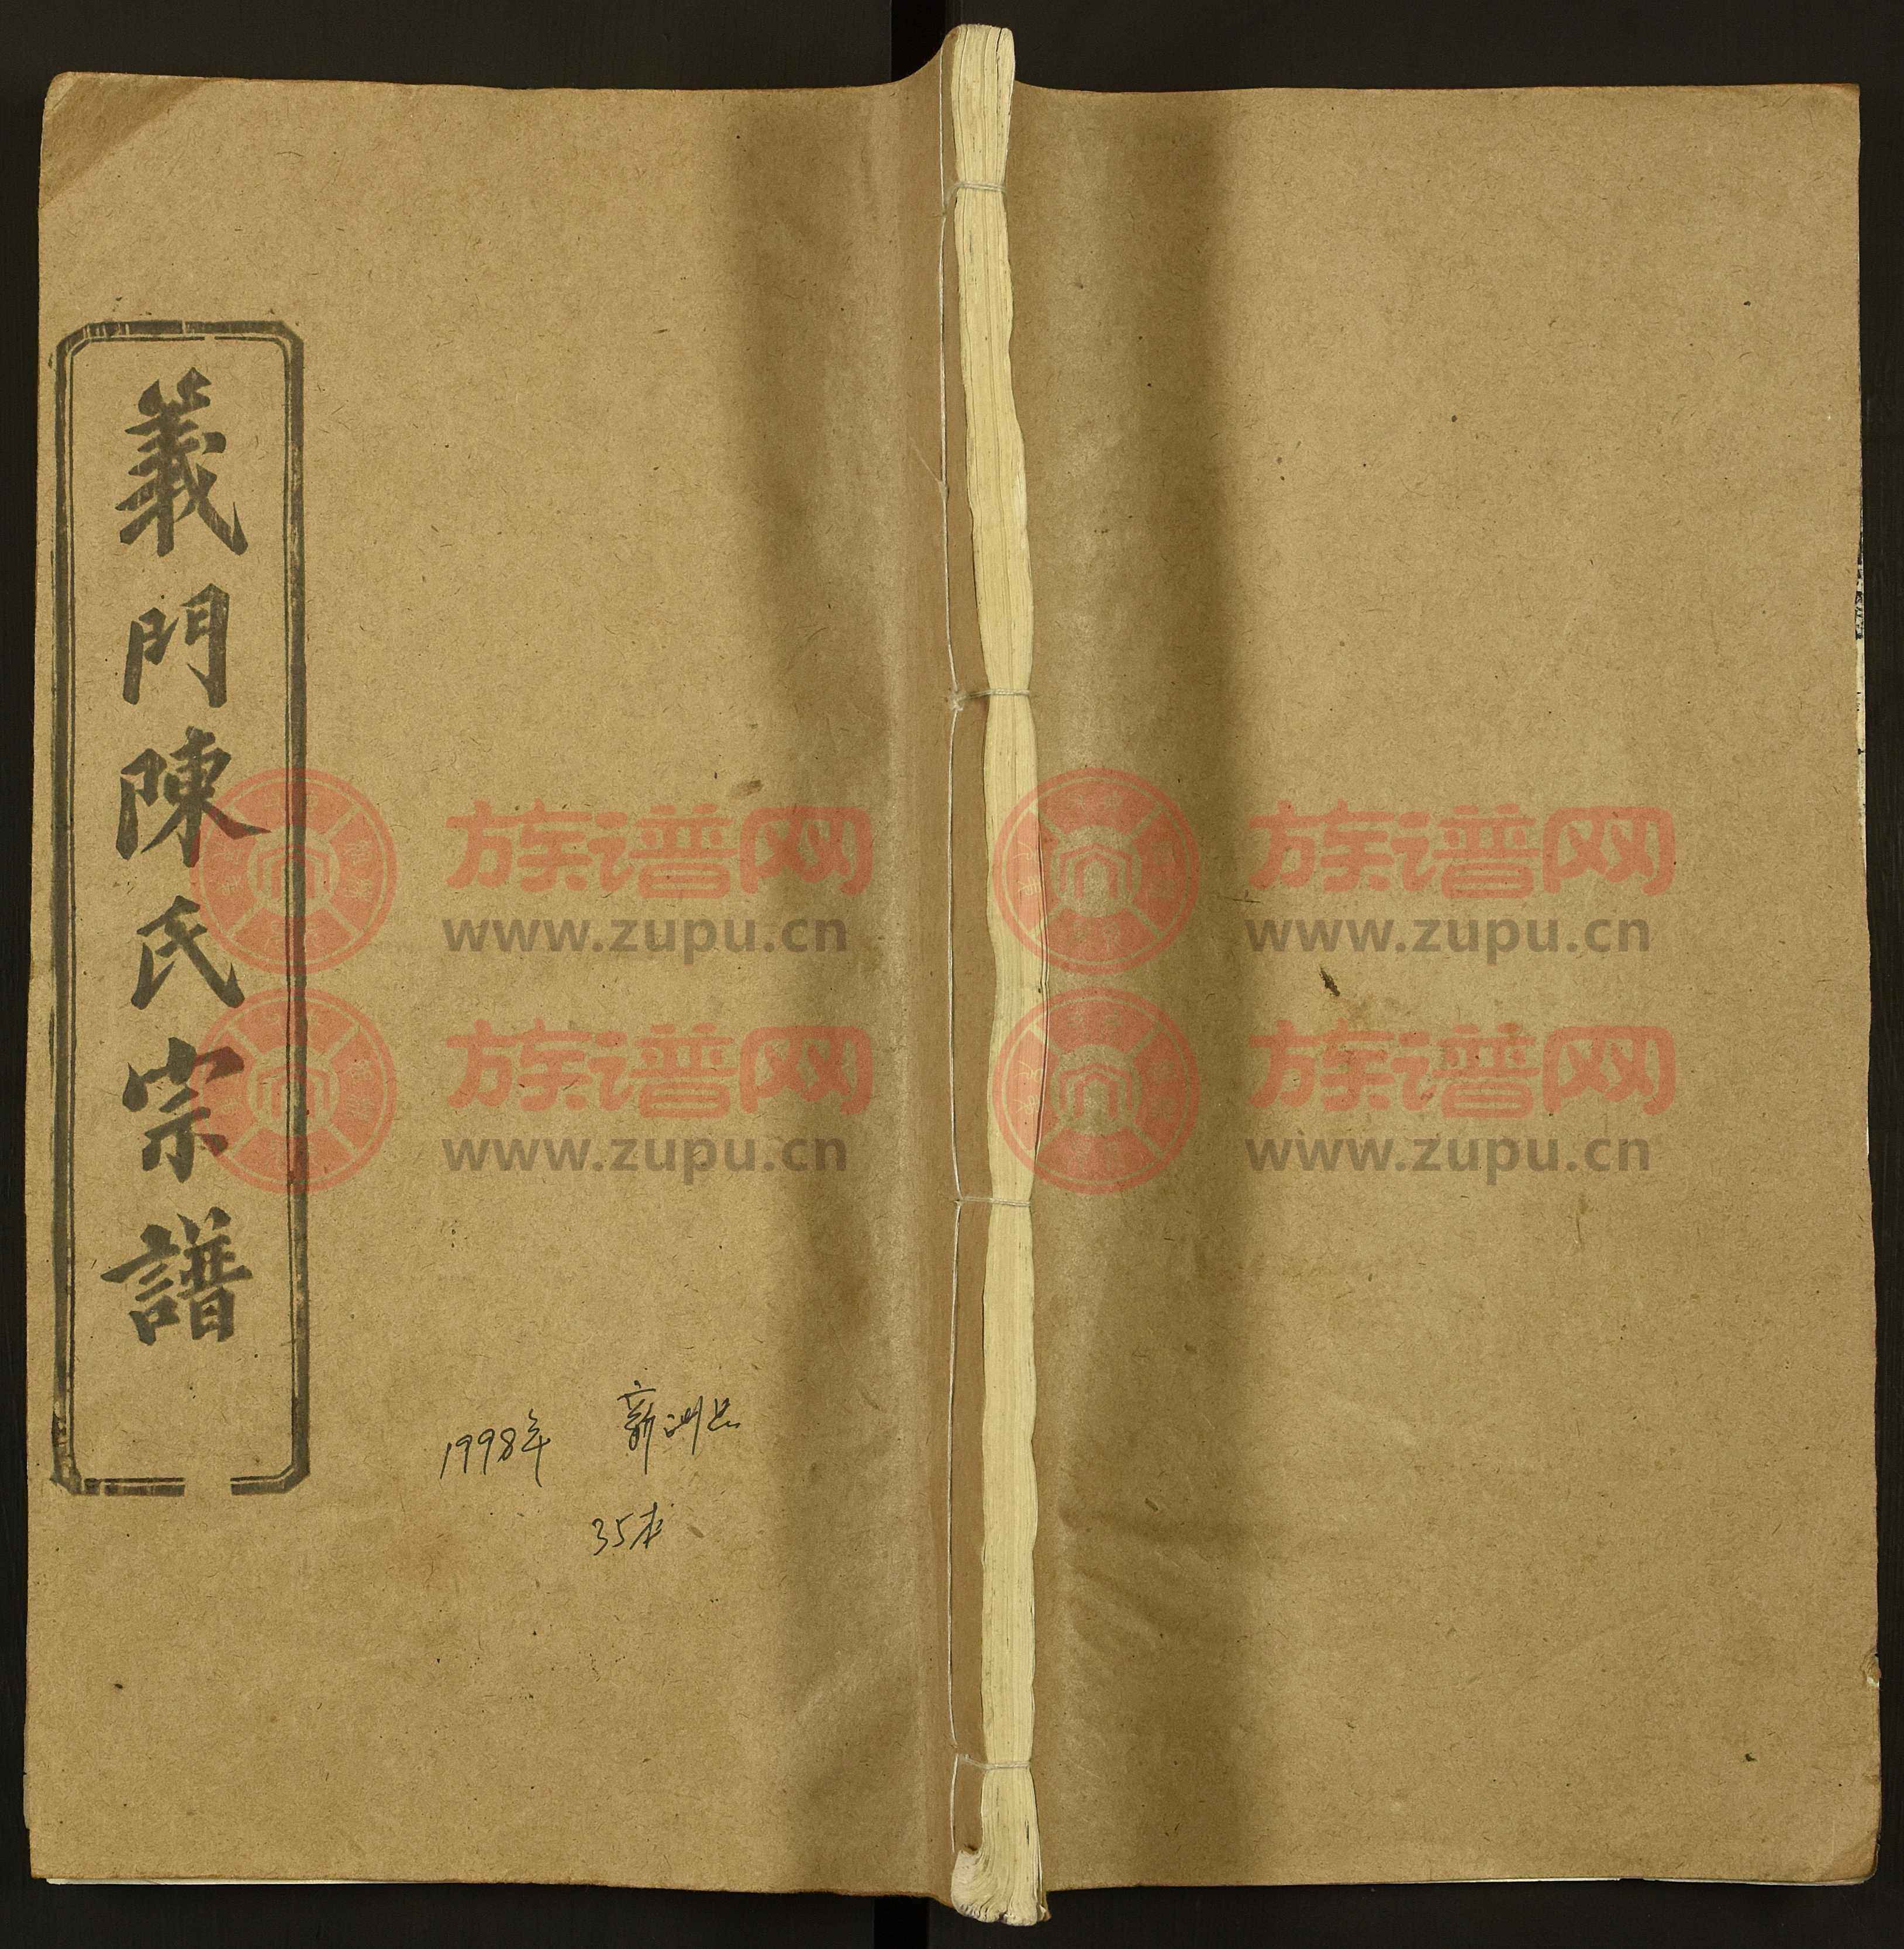 義門陳氏宗譜
族谱网 族谱网
www.zupu.cn www.zupu.cn
族谱网 族谱网
www.zupu.cn www.zupu.cn
1998年 新洲县
35本